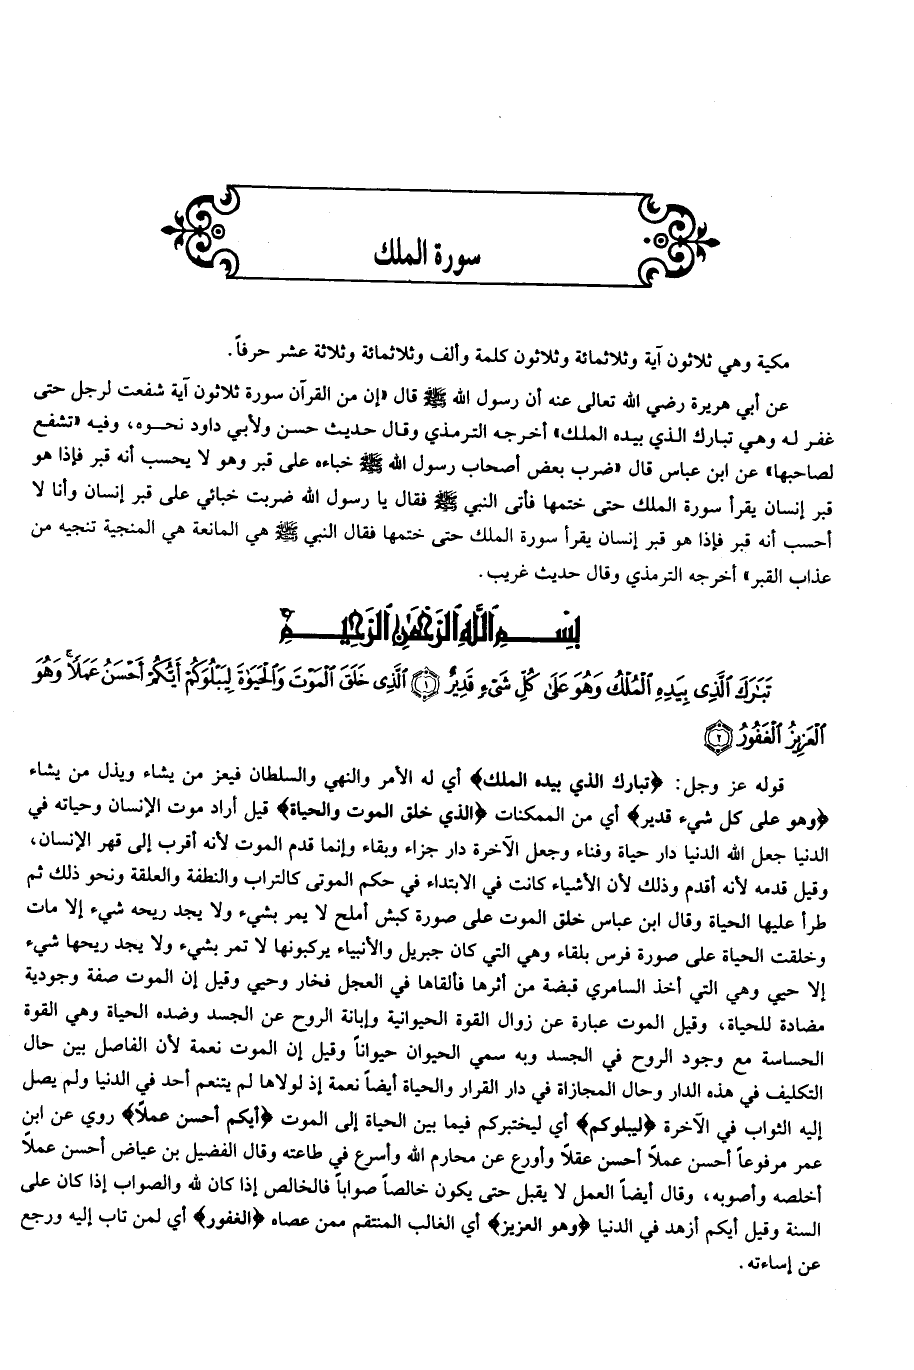 سورة الملك
مكية وهي ثلاثون آية وثلاثمائة وثلاثون كلمة وألف وثلاثمائة وثلاثة عشر حرفاً.
عن أبي هريرة رضي الله تعالى عنه أن رسول الله ﷺ قال «إن من القرآن سورة ثلاثون آية شفعت لرجل حتى
غفر له وهي تبارك الذي بيده الملك» أخرجه الترمذي وقال حديث حسن ولأبي داود نحوه، وفيه «تشفع
لصاحبها» عن ابن عباس قال «ضرب بعض أصحاب رسول الله ﷺ خباءه على قبر وهو لا يحسب أنه قبر فإذا هو
قبر إنسان يقرأ سورة الملك حتى ختمها فأتى النبي ﷺ فقال يا رسول الله ضربت خبائي على قبر إنسان وأنا لا
أحسب أنه قبر فإذا هو قبر إنسان يقرأ سورة الملك حتى ختمها فقال النبي ﷺ هي المانعة هي المنجية تنجيه من
عذاب القبر» أخرجه الترمذي وقال حديث غريب.
بِسْمِ اللَّهِ الرَّحْمَٰنِ الرَّحِيمِ
تَبَٰرَكَ ٱلَّذِى بِيَدِهِ ٱلْمُلْكُ وَهُوَ عَلَىٰ كُلِّ شَىْءٍ قَدِيرٌ ﴿١﴾ ٱلَّذِى خَلَقَ ٱلْمَوْتَ وَٱلْحَيَوٰةَ لِيَبْلُوَكُمْ أَيُّكُمْ أَحْسَنُ عَمَلًا ۚ وَهُوَ
ٱلْعَزِيزُ ٱلْغَفُورُ ﴿٢﴾
قوله عز وجل: ﴿تبارك الذي بيده الملك﴾ أي له الأمر والنهي والسلطان فيعز من يشاء ويذل من يشاء
﴿وهو على كل شيء قدير﴾ أي من الممكنات ﴿الذي خلق الموت والحياة﴾ قيل أراد موت الإنسان وحياته في
الدنيا جعل الله الدنيا دار حياة وفناء وجعل الآخرة دار جزاء وبقاء وإنما قدم الموت لأنه أقرب إلى قهر الإنسان،
وقيل قدمه لأنه أقدم وذلك لأن الأشياء كانت في الابتداء في حكم الموتى كالتراب والنطفة والعلقة ونحو ذلك ثم
طرأ عليها الحياة وقال ابن عباس خلق الموت على صورة كبش أملح لا يمر بشيء ولا يجد ريحه شيء إلا مات
وخلقت الحياة على صورة فرس بلقاء وهي التي كان جبريل والأنبياء يركبونها لا تمر بشيء ولا يجد ريحها شيء
إلا حيي وهي التي أخذ السامري قبضة من أثرها فألقاها في العجل فخار وحيي وقيل إن الموت صفة وجودية
مضادة للحياة، وقيل الموت عبارة عن زوال القوة الحيوانية وإبانة الروح عن الجسد وضده الحياة وهي القوة
الحساسة مع وجود الروح في الجسد وبه سمي الحيوان حيواناً وقيل إن الموت نعمة لأن الفاصل بين حال
التكليف في هذه الدار وحال المجازاة في دار القرار والحياة أيضاً نعمة إذ لولاها لم يتنعم أحد في الدنيا ولم يصل
إليه الثواب في الآخرة ﴿ليبلوكم﴾ أي ليختبركم فيما بين الحياة إلى الموت ﴿أيكم أحسن عملاً﴾ روي عن ابن
عمر مرفوعاً أحسن عملاً أحسن عقلاً وأورع عن محارم الله وأسرع في طاعته وقال الفضيل بن عياض أحسن عملاً
أخلصه وأصوبه، وقال أيضاً العمل لا يقبل حتى يكون خالصاً صواباً فالخالص إذا كان لله والصواب إذا كان على
السنة وقيل أيكم أزهد في الدنيا ﴿وهو العزيز﴾ أي الغالب المنتقم ممن عصاه ﴿الغفور﴾ أي لمن تاب إليه ورجع
عن إساءته.